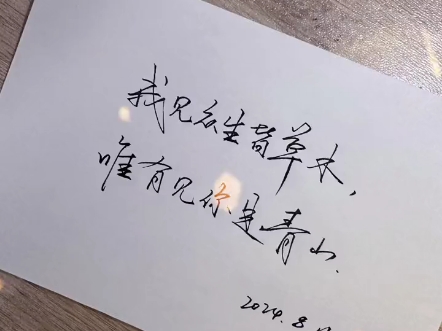 我见众生皆草木，
唯有见你是青山.
2024.8